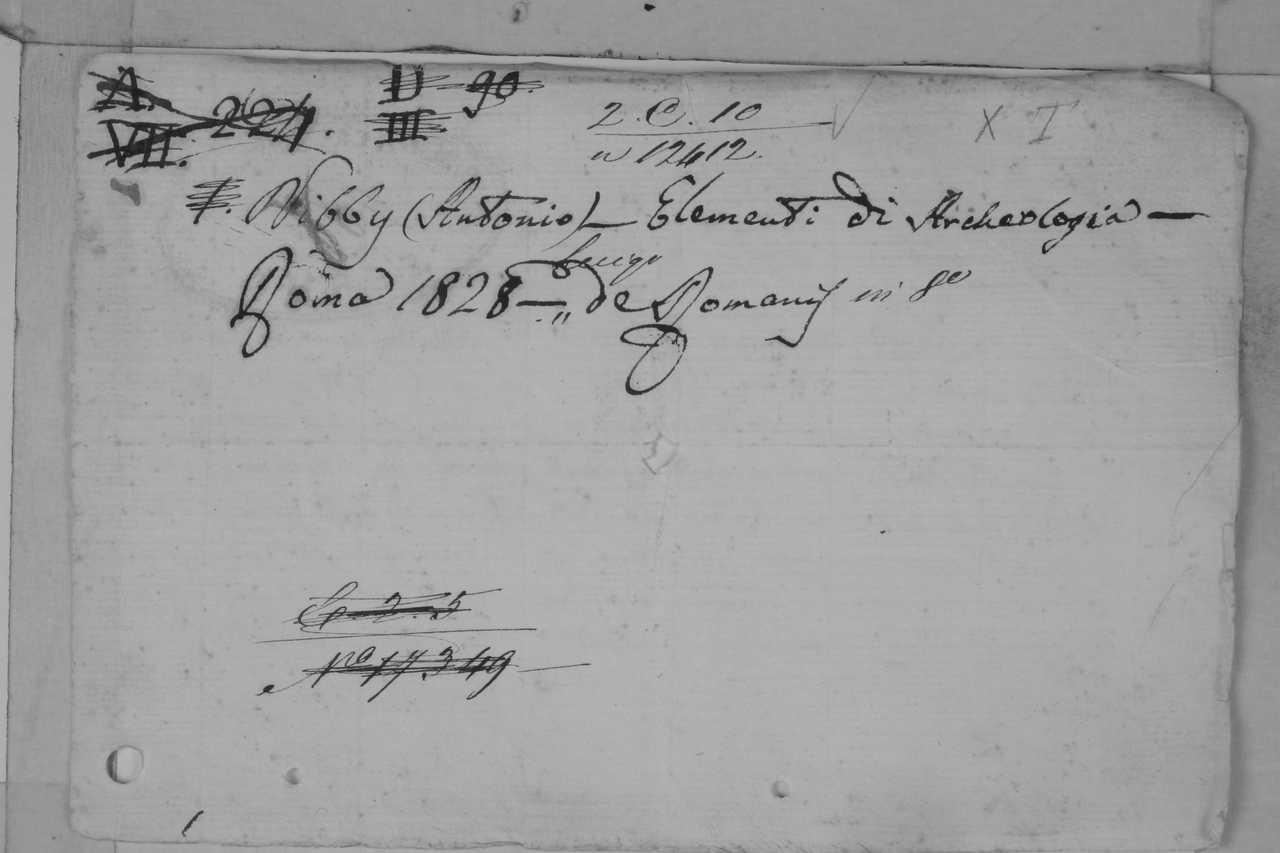 A. VII. 224. D III 90.
2. C. 10
n 12412.
X I
Nibby (Antonio) — Elementi di Archeologia —
Roma 1828 — „ de Romanis in 8º
C. 2. 5
Nº 17349